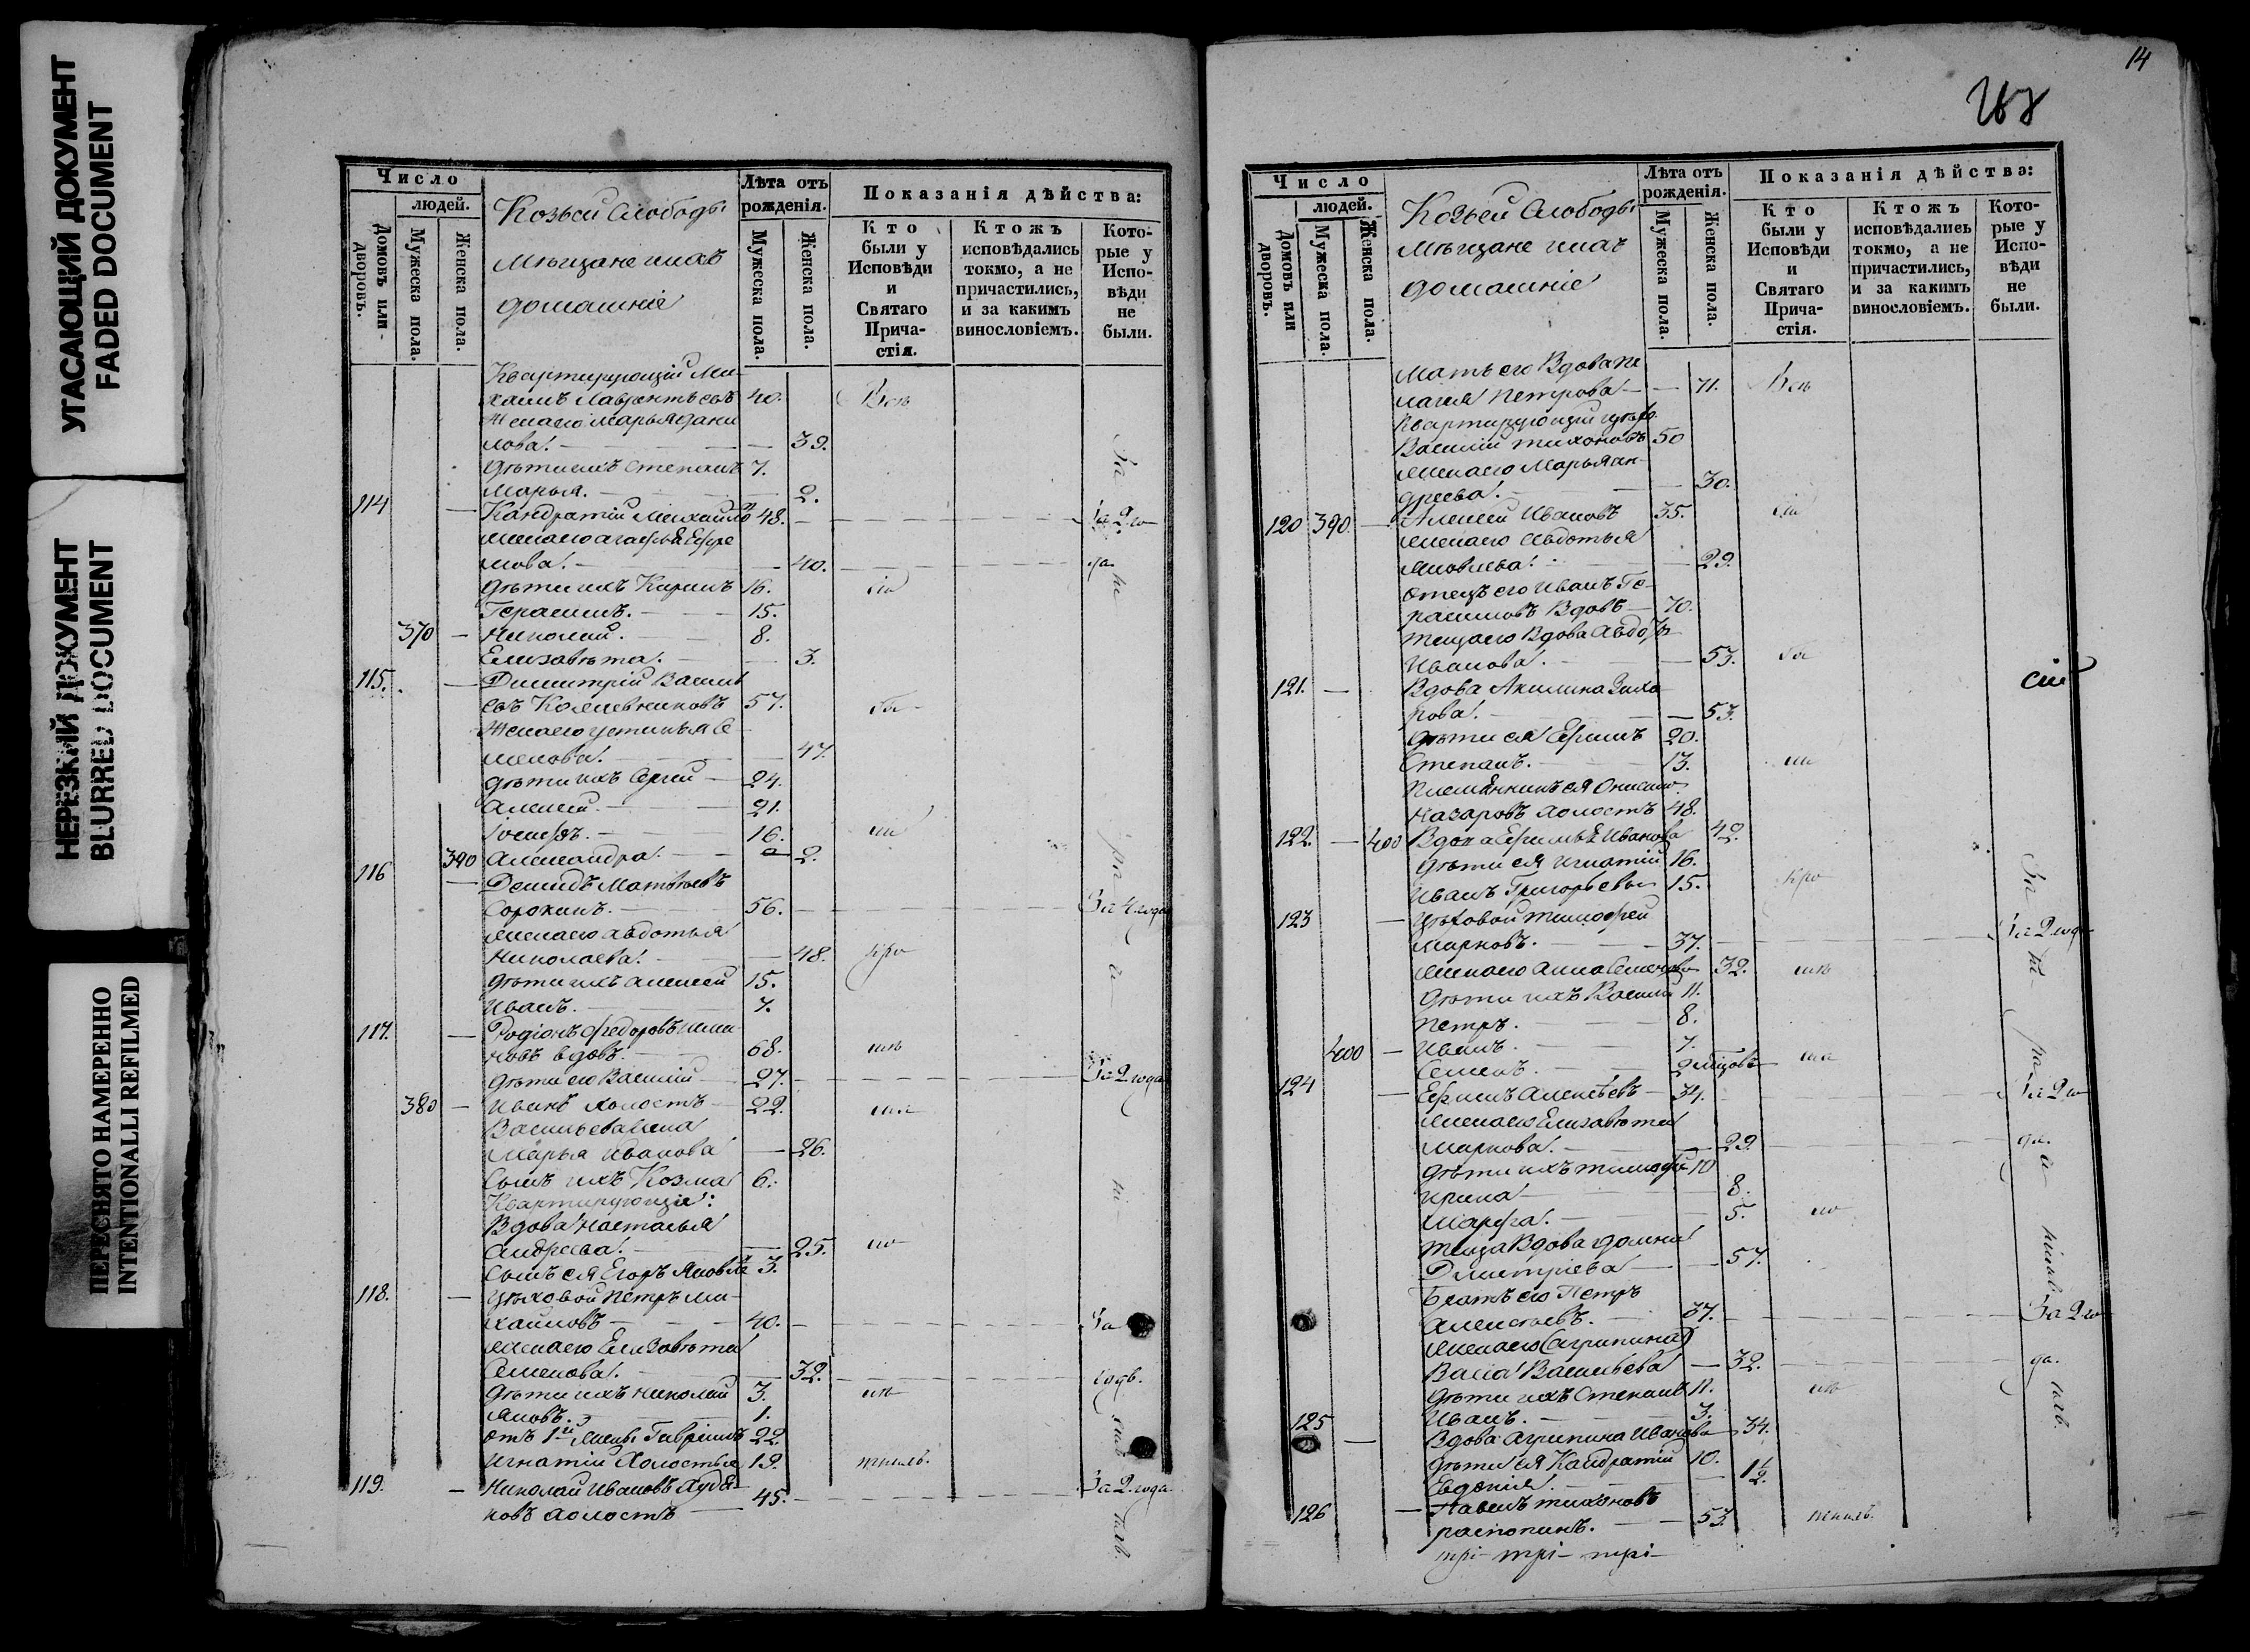 УГАСАЮЩИЙ ДОКУМЕНТ
FADED DOCUMENT
НЕРЕЗКИЙ ДОКУМЕНТ
BLURRED DOCUMENT
ПЕРЕСНЯТО НАМЕРЕННО
INTENTIONALLI REFILMED
Число
людей.
Домовъ или дворовъ.
Мужеска пола.
Женска пола.
Козьей Слободы
Мѣщане и ихъ
домашніе
Лѣта отъ рожденія.
Мужеска пола.
Женска пола.
Показанія дѣйства:
Кто были у Исповѣди и Святаго Прича-стія.
Ктожъ исповѣдались токмо, а не причастились, и за какимъ винословіемъ.
Кото-рые у Испо-вѣди не были.
Квартирующій Ми-
хаилъ Лаврентьевъ 40. Всѣ
Жена его Марья Дани
лова. — 39.
дѣти ихъ Степанъ 7.
Марья. — 2.
114 — Кандратій Михайло 48. — За 2 го
жена его Агафья Ефре
мова. — 40. — да
дѣти ихъ Карпъ 16.
Герасимъ. — 15.
370 — Николай. — 8.
Елизавета. — 3.
115. — Димитрій Василь
евъ Кожевниковъ 57.
Жена его Устинья Се
менова. — 47.
дѣти ихъ Сергей — 24.
Алексей. — 21.
Іосифъ. — 16.
390 Александра. — 2.
116 — Демидъ Матвѣевъ
Сорокинъ. — 56. — За 4. года
жена его Авдотья
Николаева. — 48.
дѣти ихъ Алексей 15.
Иванъ. — 7.
117. — Родіонъ Федоровъ
новъ вдовъ. — 68.
дѣти его Василій — 27. — За 2 года
380 — Иванъ холостъ — 22.
Васильева жена
Марья Иванова — 26.
Сынъ ихъ Козма 6.
Квартирующія:
Вдова Настасья
Андреева. — 25.
Сынъ ея Егоръ Яковле 3.
118. — Цѣховой Петръ Ми-
хайловъ — 40. — За
жена его Елизавета
Семенова. — 32. — годъ.
дѣти ихъ Николай 3.
Яковъ. — 1.
отъ 1й жены Гавріилъ 22.
Игнатій Холостые 19.
119. — Николай Ивановъ Худя-
ковъ холостъ — 45. — За 2. года
14
Число
людей.
Домовъ или дворовъ.
Мужеска пола.
Женска пола.
Козьей Слободы
Мѣщане и ихъ
домашніе
Лѣта отъ рожденія.
Мужеска пола.
Женска пола.
Показанія дѣйства:
Кто были у Исповѣди и Святаго Прича-стія.
Ктожъ исповѣдались токмо, а не причастились, и за какимъ винословіемъ.
Кото-рые у Испо-вѣди не были.
Мать его Вдова Пе
лагея Петрова — 71. Всѣ
Квартирующій цѣхо.
Василій Тихоновъ 50
жена его Марья Ан-
дреева. — 30.
120 390. — Алексей Ивановъ 35.
жена его Авдотья
Яковлева. — 29.
отецъ его Иванъ Ге-
расимовъ Вдовъ — 70.
теща его Вдова Авдоть
Иванова. — 53.
121. — Вдова Акилина Заха
рова. — 53.
дѣти ея Ефимъ 20.
Степанъ. — 13.
племянникъ ея Онисим.
Назаровъ холостъ 48.
122. — 400 Вдова Ефимья Иванова 42.
дѣти ея Игнатій 16.
Иванъ Григорьевы 15.
123 — Цѣховой Тимофей
Марковъ. — 37. — За 2 года
жена его Анна Семенова 32.
дѣти ихъ Василій 11.
Петръ. — 8.
400 — Иванъ. — 7.
Семенъ. — 2 мѣсцовъ
124 — Ефимъ Алексѣевъ — 34. — За 2 го
жена его Елизавета
Маркова. — 29 — да.
дѣти ихъ Тимофей 10
Ирина — 8.
Марфа. — 5.
теща Вдова Домна
Димитріева — 57.
Братъ его Петръ
Алексѣевъ. — 37. — За 2 го
жена его (Агрипина)
Васса Васильева — 32. — да.
дѣти ихъ Степанъ 11.
Иванъ. — 3.
125 — Вдова Агрипина Иванова 34.
дѣти ея Кандратій 10.
Евдокія. — 1½.
126 — Павелъ Тихоновъ
распопинъ. — 53.
три — три — три —